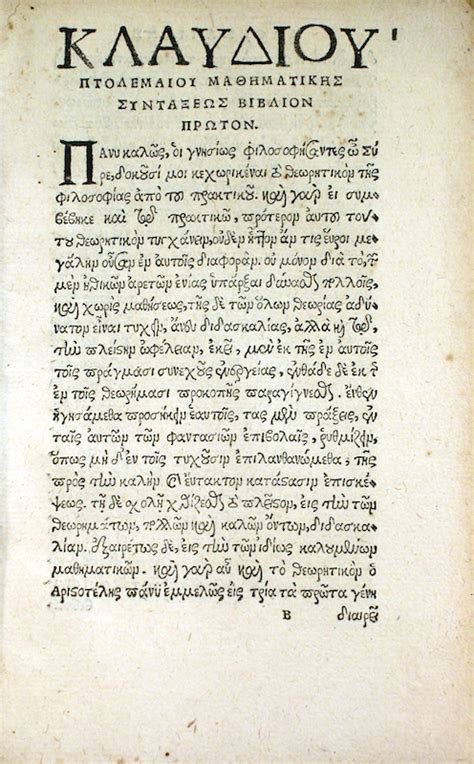 ΚΛΑΥΔΙΟΥ
ΠΤΟΛΕΜΑΙΟΥ ΜΑΘΗΜΑΤΙΚΗΣ
ΣΥΝΤΑΞΕΩΣ ΒΙΒΛΙΟΝ
ΠΡΩΤΟΝ.
ΠΑΝΥ καλῶς, οἱ γνησίως φιλοσοφήσαντες ὦ Σύ
ρε, δοκοῦσί μοι κεχωρικέναι τὸ θεωρητικὸν τῆς
φιλοσοφίας ἀπὸ τοῦ πρακτικοῦ. καὶ γὰρ εἰ συμ
βέβηκε καὶ τῷ πρακτικῷ, πρότερον αὐτοῦ τού
του θεωρητικὸν τυγχάνειν, οὐδὲν ἧττον ἄν τις εὕροι με
γάλην οὖσαν ἐν αὐτοῖς διαφοράν. οὐ μόνον διὰ τὸ, τῶν
μὲν ἠθικῶν ἀρετῶν ἐνίας ὑπάρξαι δύνασθαι πολλοῖς,
καὶ χωρὶς μαθήσεως, τῆς δὲ τῶν ὅλων θεωρίας ἀδύ
νατον εἶναι τυχεῖν, ἄνευ διδασκαλίας, ἀλλὰ καὶ τῷ,
τὴν πλείστην ὠφέλειαν, ἐκεῖ, μὲν ἐκ τῆς ἐν αὐτοῖς
τοῖς πράγμασι συνεχοῦς ἐνεργείας, ἐνθάδε δὲ ἐκ τῆς
ἐν τοῖς θεωρήμασι προκοπῆς παραγίγνεσθαι. ἔνθεν
ἡγησάμεθα προσήκειν ἑαυτοῖς, τὰς μὲν πράξεις, ἐν
ταῖς αὐτῶν τῶν φαντασιῶν ἐπιβολαῖς, ῥυθμίζειν,
ὅπως μηδ' ἐν τοῖς τυχοῦσιν ἐπιλανθανώμεθα, τῆς
πρὸς τὴν καλὴν καὶ εὔτακτον κατάστασιν ἐπισκέ
ψεως. τῇ δὲ σχολῇ χαρίζεσθαι τὸ πλεῖστον, εἰς τὴν τῶν
θεωρημάτων, πολλῶν καὶ καλῶν ὄντων, διδασκα
λίαν. ἐξαιρέτως δὲ, εἰς τὴν τῶν ἰδίως καλουμένων
μαθηματικῶν. καὶ γὰρ αὖ καὶ τὸ θεωρητικὸν ὁ
Ἀριστοτέλης πάνυ ἐμμελῶς εἰς τρία τὰ πρῶτα γένη
B διαιρεῖ